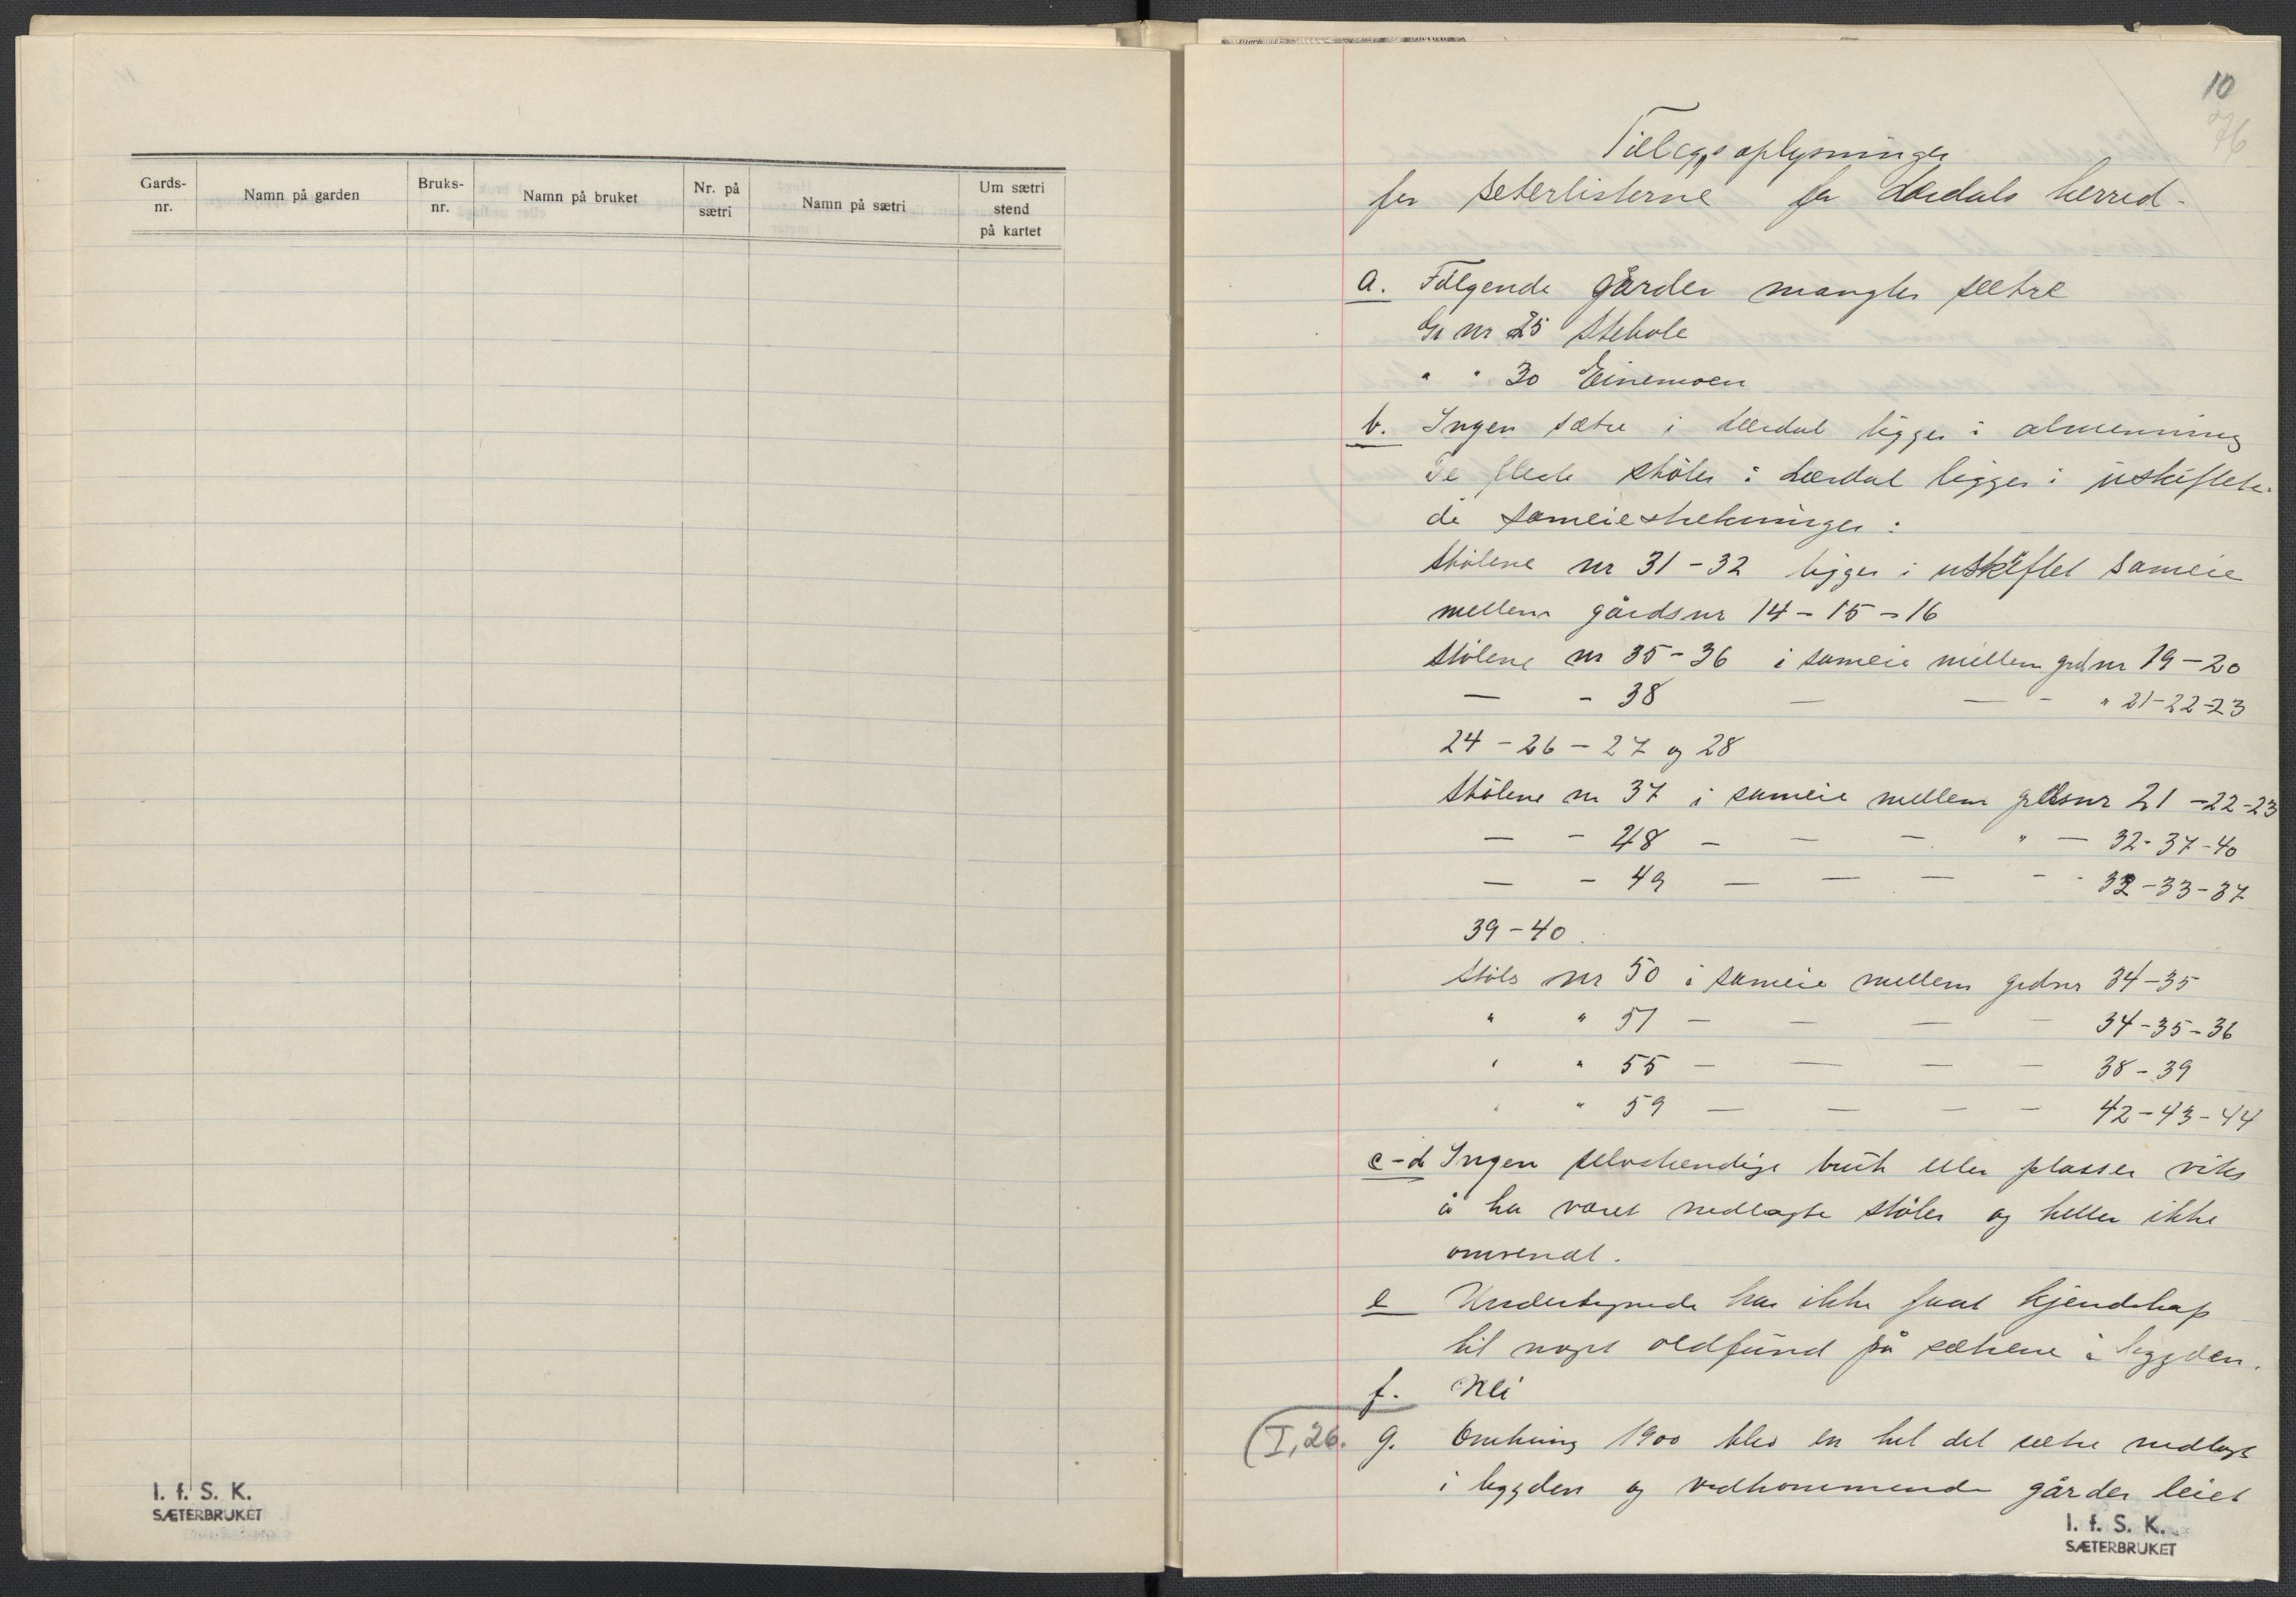 Gards-
nr.
Namn på garden
Bruks-
nr.
Namn på bruket
Nr. på
sætri
Namn på sætri
Um sætri
stend
på kartet
I. f. S. K.
SÆTERBRUKET
10
76
Tillegsoplysninger
for seterlisterne for Lærdals herred.
a. Følgende gårder mangler sætre
Gr nr 25 Stekole
" " 30 Einemoen
b. Ingen sætre i Lærdal ligger i almenning
De fleste støler i Lærdal ligger i uskiftede
de sameiestrekninger:
Stølene nr 31-32 ligger i uskiftet sameie
mellem gårdsnr 14-15-16
Stølene nr 35-36 i sameie mellem grdnr 19-20
— - 38 — — - " 21-22-23
24-26-27 og 28
Stølene nr 37 i sameie mellem grdsnr 21-22-23
— - 48 - — - " - 32-37-40
— - 49 — — — - - 32-33-37
39-40.
Støls nr 50 i sameie mellem grdnr 34-35
" " 51 — — — — 34-35-36
" " 55 — — — — 38-39
" " 59 — — — — 42-43-44
c-d Ingen selvstendige bruk eller plasser vites
å ha været nedlagte støler og heller ikke
omvendt.
e Undertegnede har ikke faat kjendskap
til noget oldfund på sætrene i bygden.
f. Nei
(I, 26. g. Omkring 1900 blev en hel del sætre nedlagt
i bygden og vedkommende gårder leiet
I. f. S. K.
SÆTERBRUKET